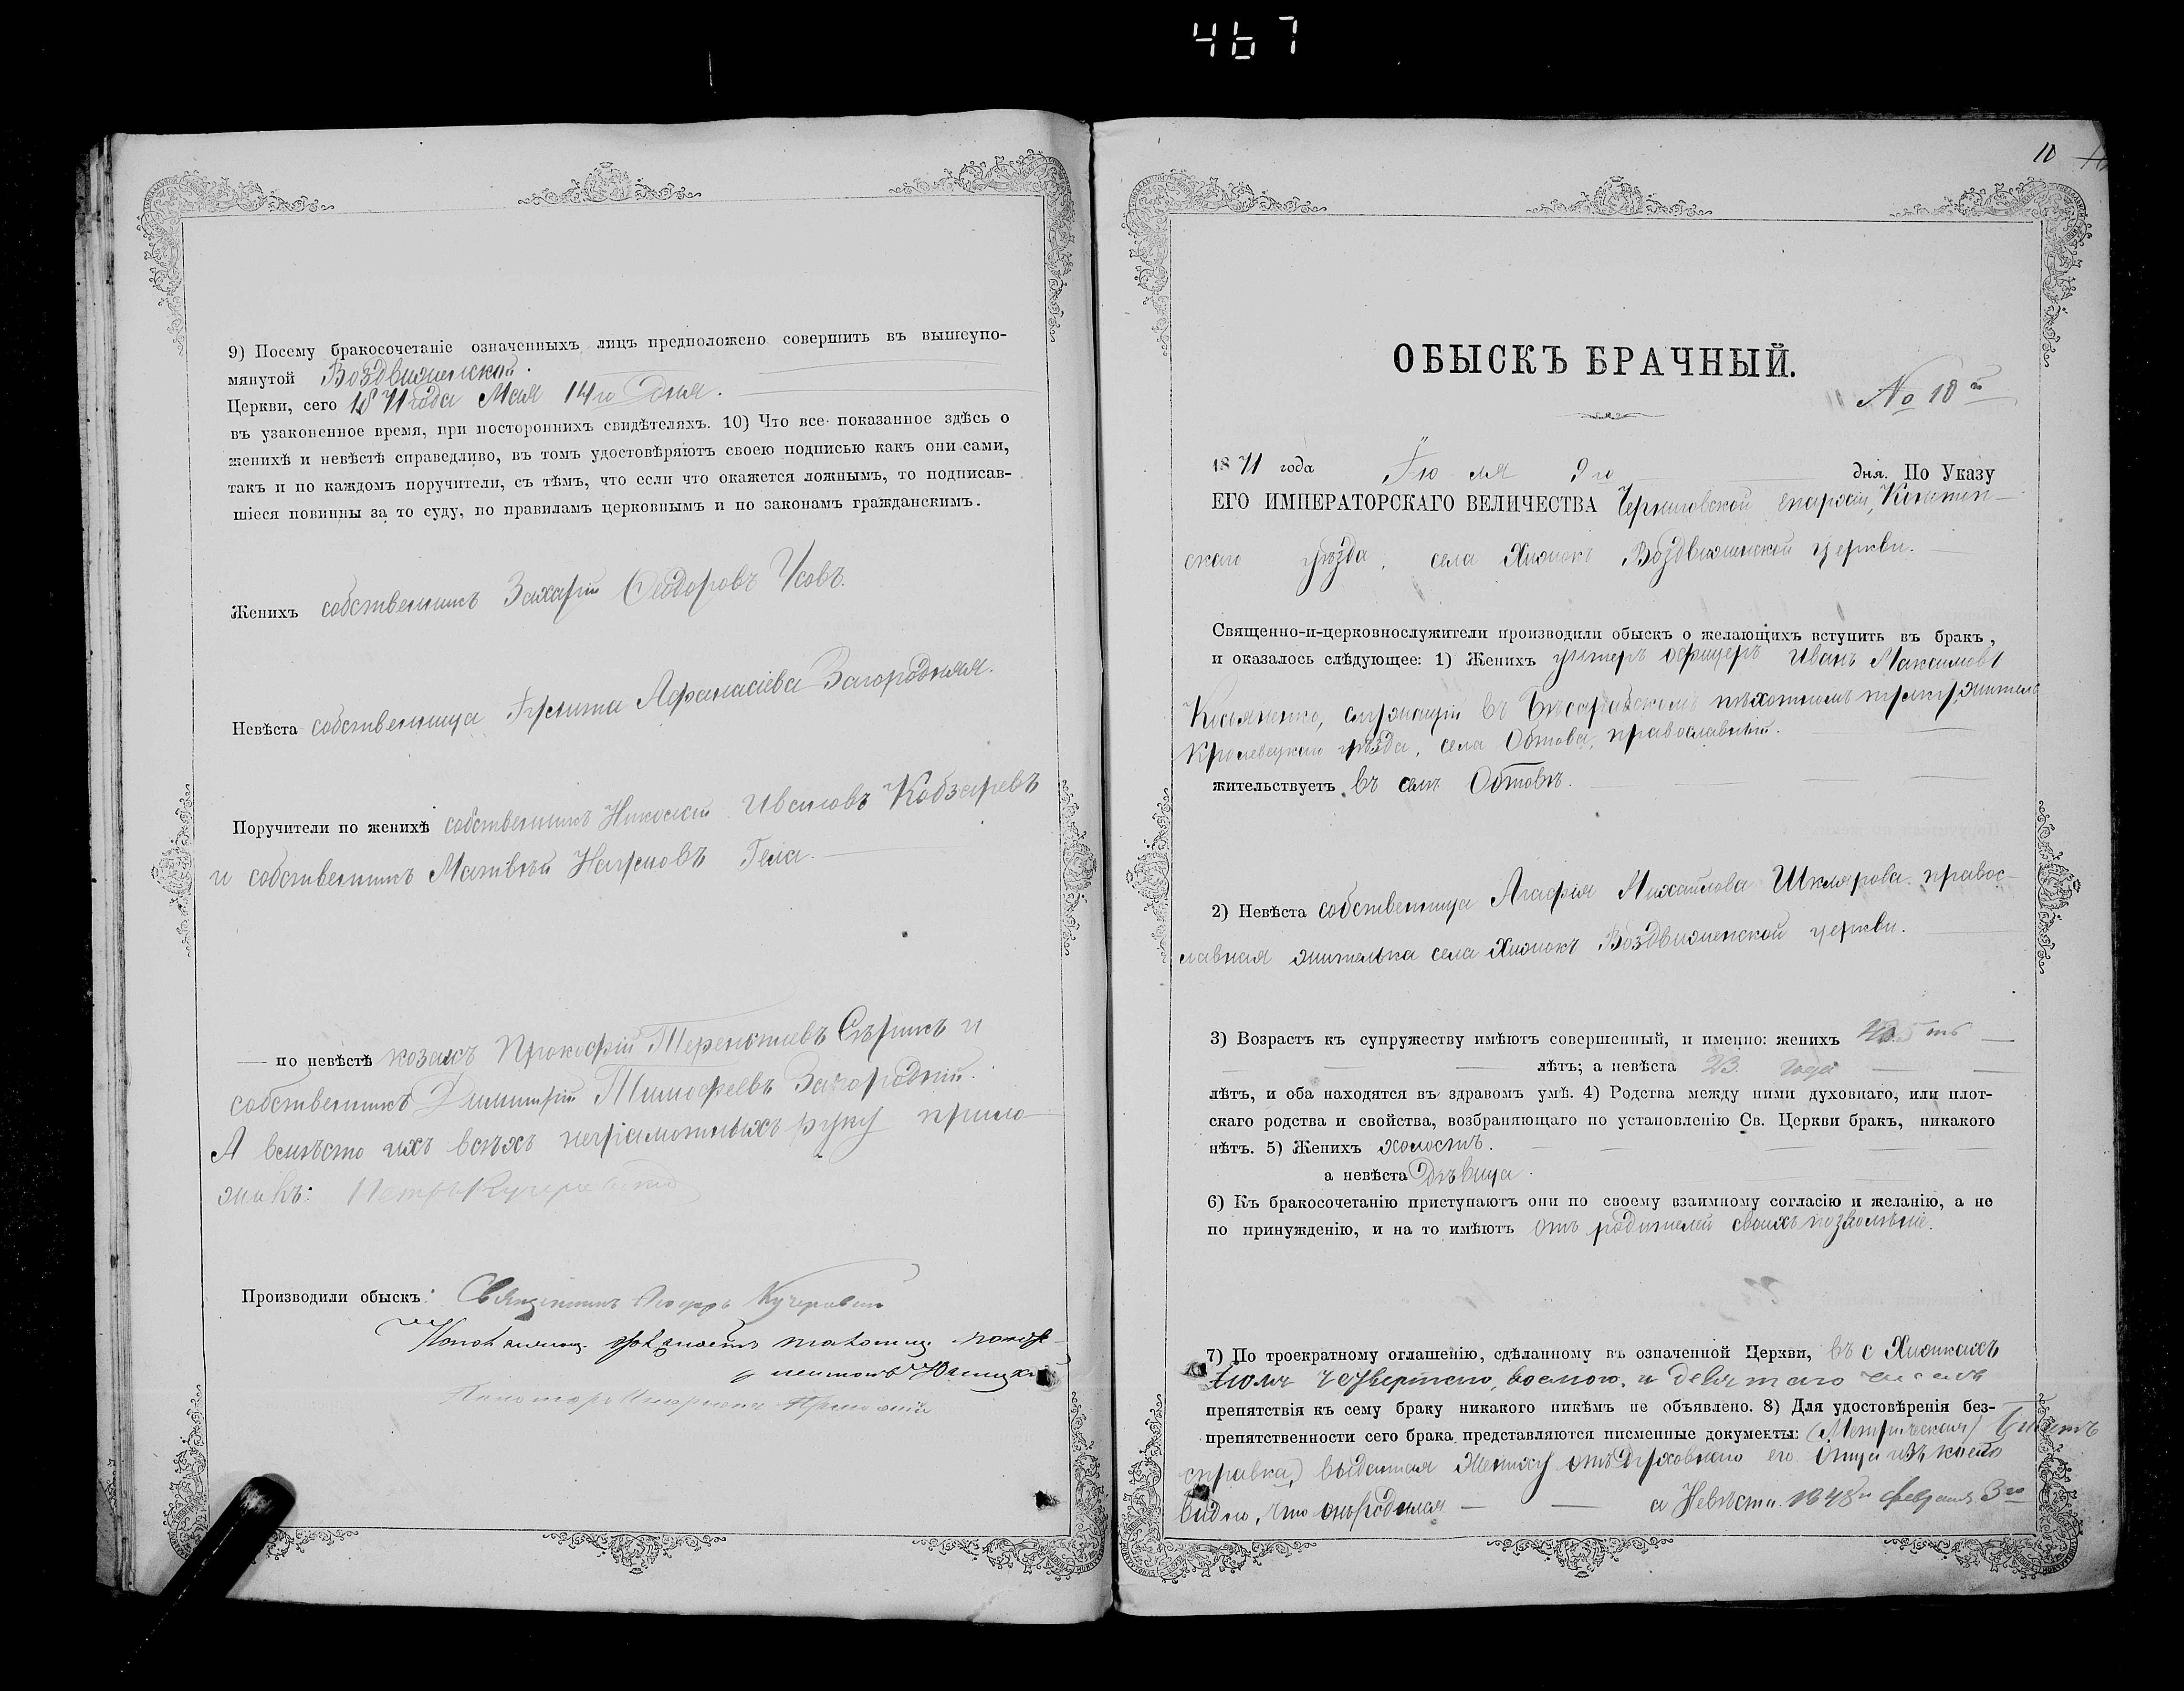 467
9) Посему бракосочетаніе означенныхъ лицъ предположено совершить въ вышеупо-
мянутой Воздвиженской
Церкви, сего 1871 года Мая 14го Дня.
въ узаконенное время, при постороннихъ свидѣтеляхъ. 10) Что все показанное здѣсь о
женихѣ и невѣстѣ справедливо, въ томъ удостовѣряютъ своею подписью какъ они сами,
такъ и по каждомъ поручители, съ тѣмъ, что если что окажется ложнымъ, то подписав-
шіеся повинны за то суду, по правиламъ церковнымъ и по законамъ гражданскимъ.
Женихъ собственникъ Захарій Ѳеодоровъ Усовъ.
Невѣста собственница Афанасіева Загородняя.
Поручители по женихѣ собственникъ Николай Ивановъ Кобзаревъ
и собственникъ Матвѣй Наумовъ Гела.
— по невѣстѣ козакъ Прокофій Терентіевъ Сѣрикъ и
собственникъ Димитрій Тимофеевъ Загородній.
А вмѣсто ихъ всѣхъ неграмотныхъ руку прило
жилъ: Петръ Кучеровскій
Производили обыскъ: Священникъ Кучеровскій
10
ОБЫСКЪ БРАЧНЫЙ.
№ 10й
1871 года Іюля 9го дня. По Указу
ЕГО ИМПЕРАТОРСКАГО ВЕЛИЧЕСТВА Черниговской епархіи, Конотоп
скаго уѣзда, села Хижокъ Воздвиженской церкви.
Священно-и-церковнослужители производили обыскъ о желающихъ вступить въ бракъ,
и оказалось слѣдующее: 1) Женихъ унтеръ офицеръ Иванъ Максимовъ
служащій въ пѣхотномъ полку, житель
Кролевецкаго уѣзда, села Обтова, православный.
жительствуетъ въ селѣ Обтовѣ.
2) Невѣста собственница Агафія Михайлова Шклярова правос
лавная жителька села Хижокъ Воздвиженской церкви.
3) Возрастъ къ супружеству имѣютъ совершенный, и именно: женихъ
лѣтъ; а невѣста 23 года
лѣтъ, и оба находятся въ здравомъ умѣ. 4) Родства между ними духовнаго, или плот-
скаго родства и свойства, возбраняющаго по установленію Св. Церкви бракъ, никакого
нѣтъ. 5) Женихъ холостъ.
а невѣста Дѣвица.
6) Къ бракосочетанію приступаютъ они по своему взаимному согласію и желанію, а не
по принужденію, и на то имѣютъ отъ родителей своихъ позволѣніе.
7) По троекратному оглашенію, сдѣланному въ означенной Церкви, въ с Хижкахъ
Іюля четвертаго, восмого, и девятаго
препятствія къ сему браку никакого никѣмъ не объявлено. 8) Для удостовѣренія без-
препятственности сего брака представляются писменные документы: (Метрическая) Билетъ
справка) выданная Жениху отъ Духовнаго его Отца изъ коего
видно, что онъ родился — — а Невѣста 1848 Февраля 3го